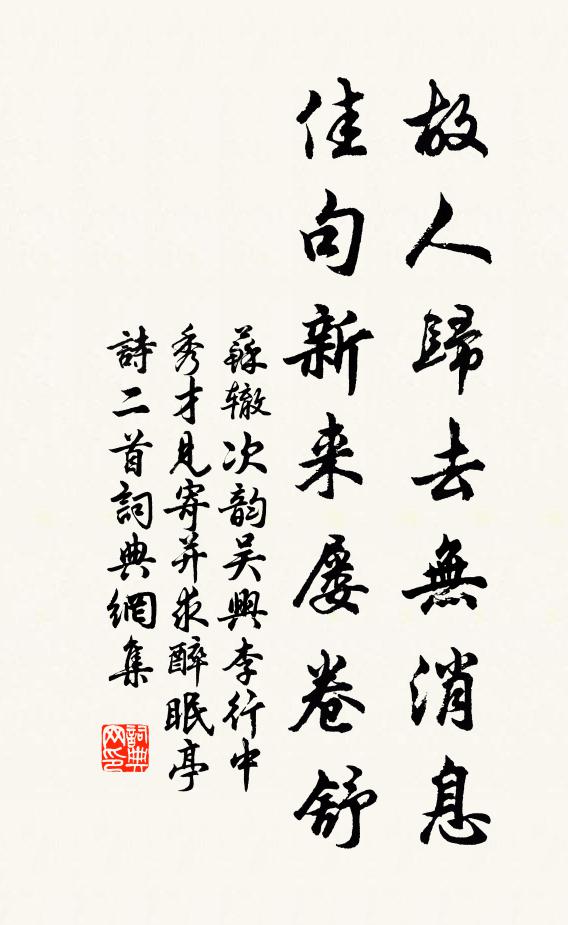 故人歸去無消息
佳句新来屡卷舒
蘇辙次韵吴興李行中
秀才見寄并求醉眠亭
詩二首詞典網集
詞典
网印